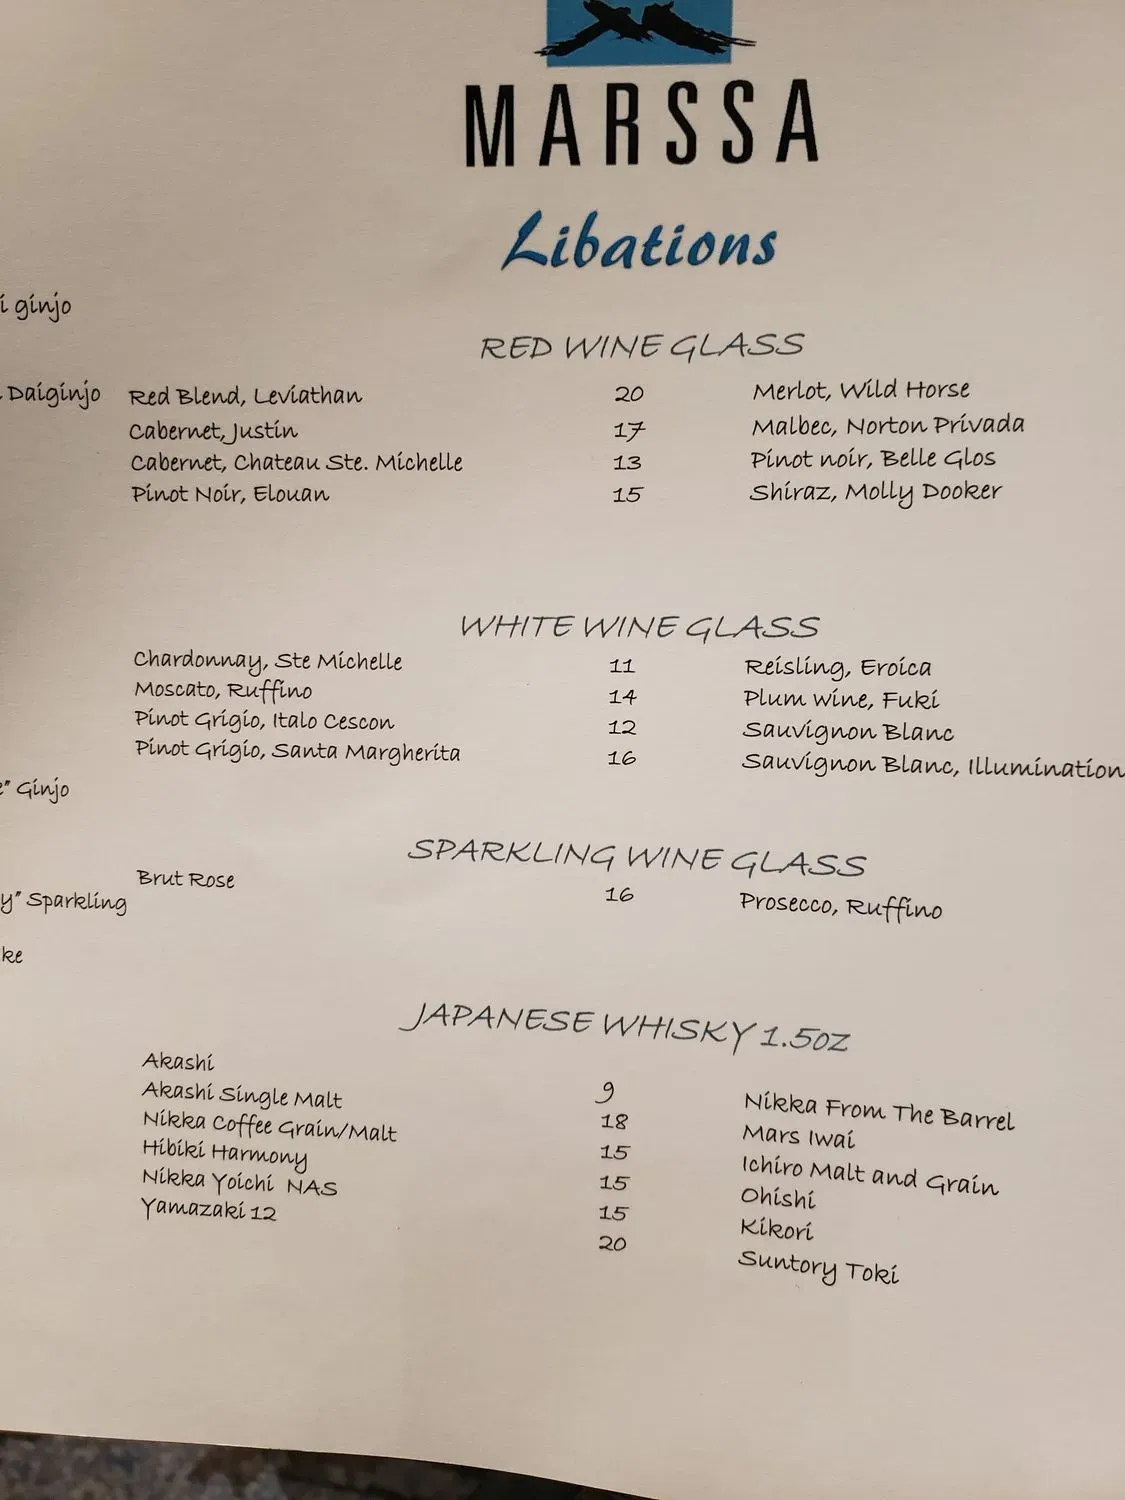 MARSSA
Libations
i ginjo
RED WINE GLASS
Daiginjo
Red Blend, Leviathan 20 Merlot, Wild Horse
Cabernet, Justin 17 Malbec, Norton Privada
Cabernet, Chateau Ste. Michelle 13 Pinot noir, Belle Glos
Pinot Noir, Elouan 15 Shiraz, Molly Dooker
WHITE WINE GLASS
Chardonnay, Ste Michelle 11 Reisling, Eroica
Moscato, Ruffino 14 Plum wine, Fuki
Pinot Grigio, Italo Cescon 12 Sauvignon Blanc
Pinot Grigio, Santa Margherita 16 Sauvignon Blanc, Illumination
e" Ginjo
SPARKLING WINE GLASS
Brut Rose 16 Prosecco, Ruffino
y" Sparkling
ke
JAPANESE WHISKY 1.5oz
Akashi 9 Nikka From The Barrel
Akashi Single Malt 18 Mars Iwai
Nikka Coffee Grain/Malt 15 Ichiro Malt and Grain
Hibiki Harmony 15 Ohishi
Nikka Yoichi NAS 15 Kikori
Yamazaki 12 20 Suntory Toki